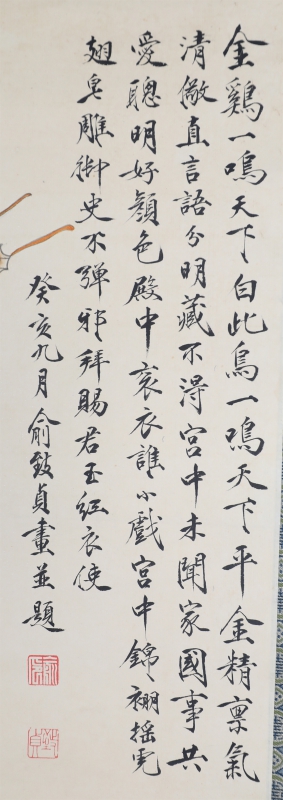 金鷄一鳴天下白此鳥一鳴天下平金精禀氣
清儆直言語分明藏不淂宮中未聞家國事共
愛聰明好顏色殿中衮衣誰小戲宮中錦棚摇霓
翅皂雕御史不彈邪拜賜君王紅衣使
癸亥九月俞致貞畫並題